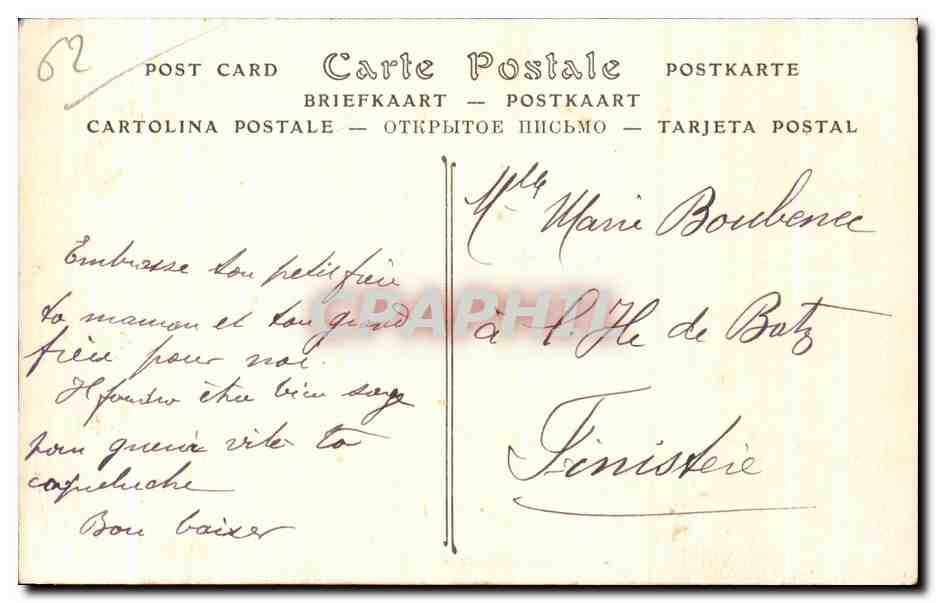 62
POST CARD Carte Postale POSTKARTE
BRIEFKAART — POSTKAART
CARTOLINA POSTALE — ОТКРЫТОЕ ПИСЬМО — TARJETA POSTAL
Embrasse ton petit frère
ta maman et ton grand
frère pour moi.
Il faudra être bien sage
pour guérir vite ta
coqueluche
Bon baiser
Mlle Marie Boubenec
à l'Ile de Batz
Finistère
CPAPHIL